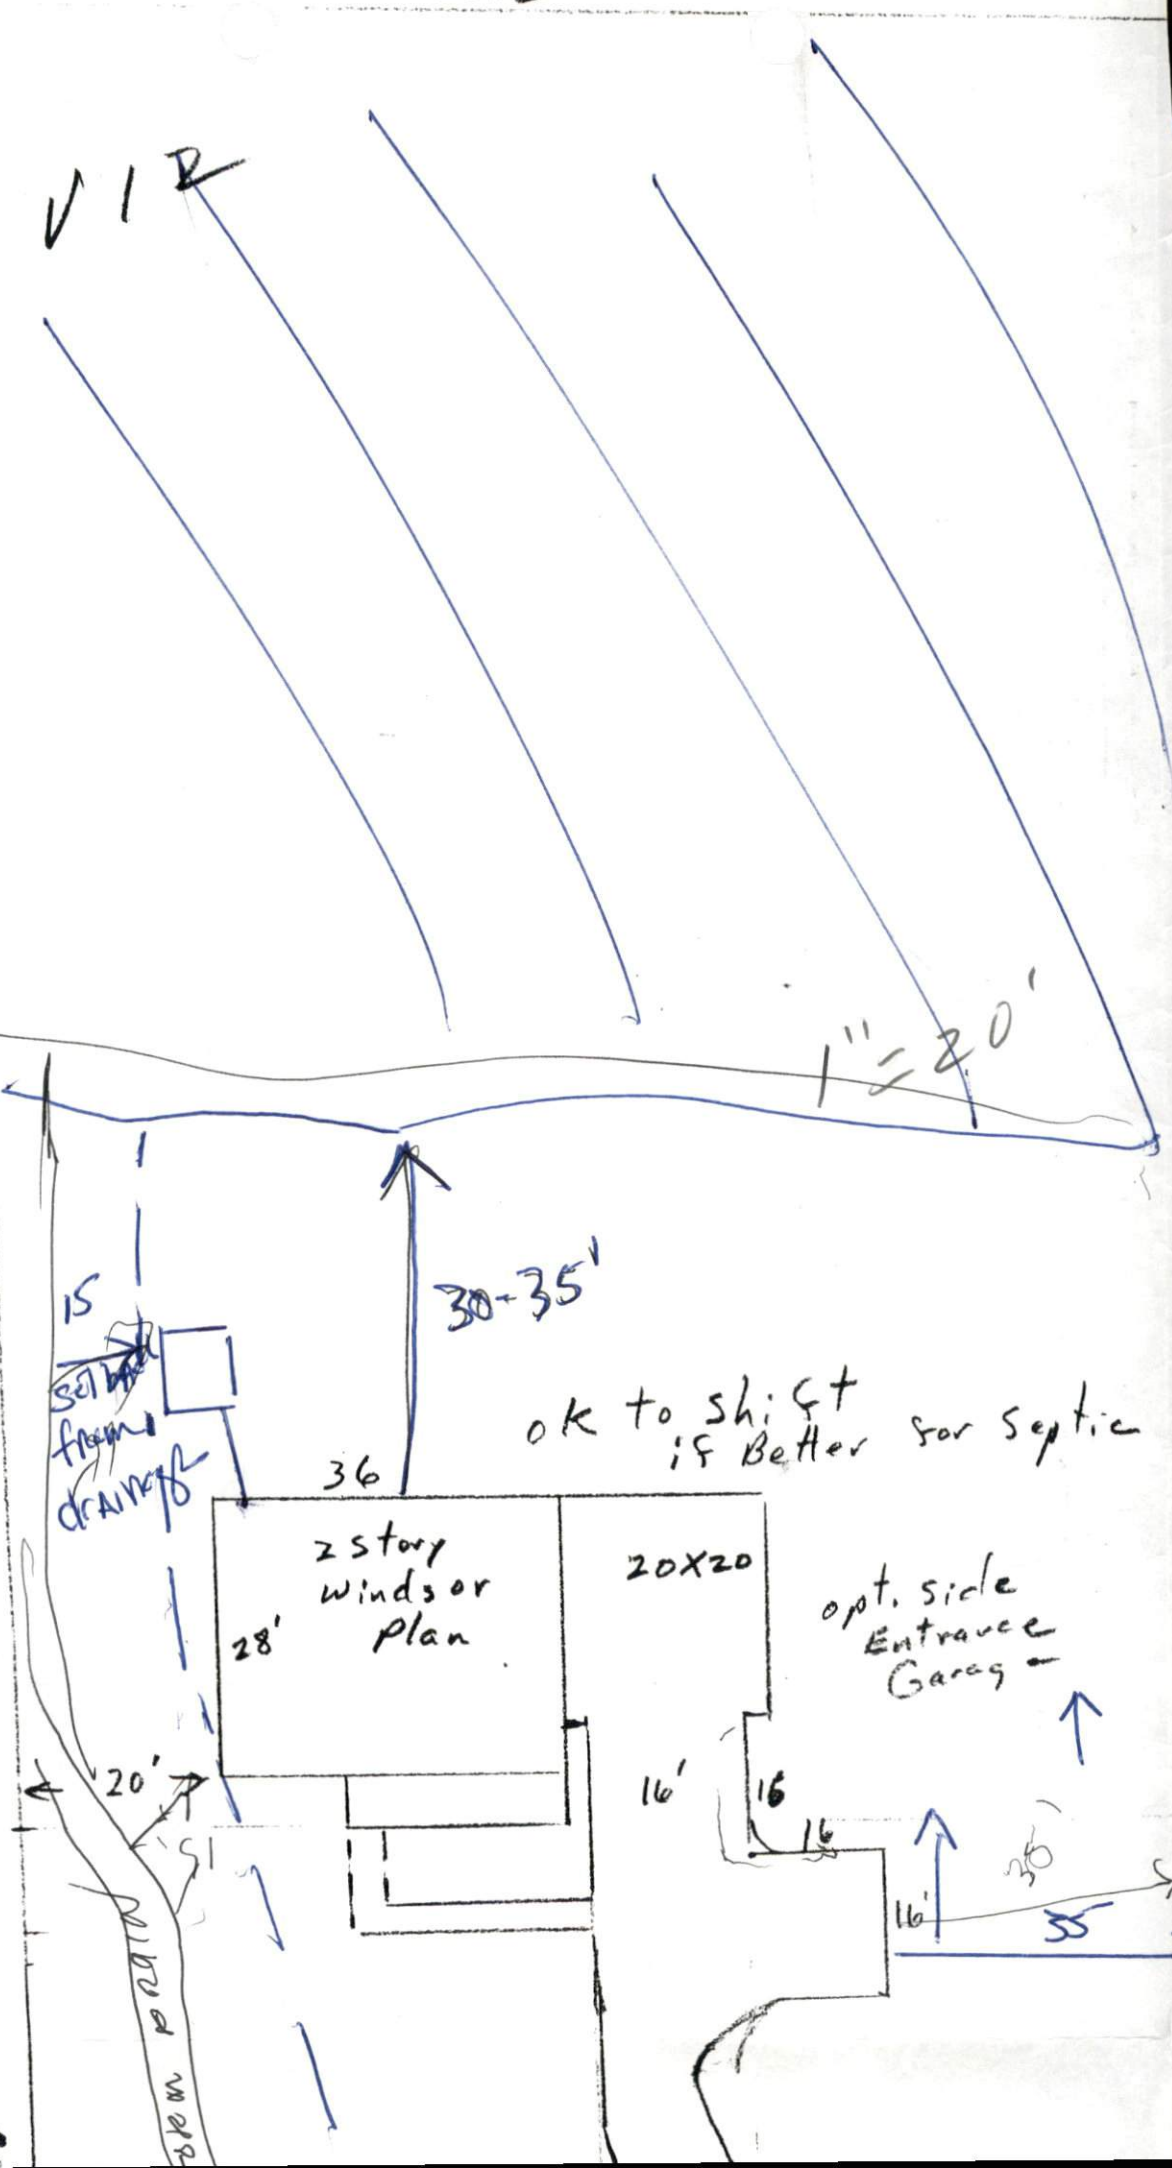 V I R
1" = 20'
15
setback
from
drainage
30-35'
ok to shift
if Better for Septic
36
2 story
Windsor
Plan
28'
20X20
opt. side
Entrance
Garag
20'
15'
16'
16
16
16'
30
35